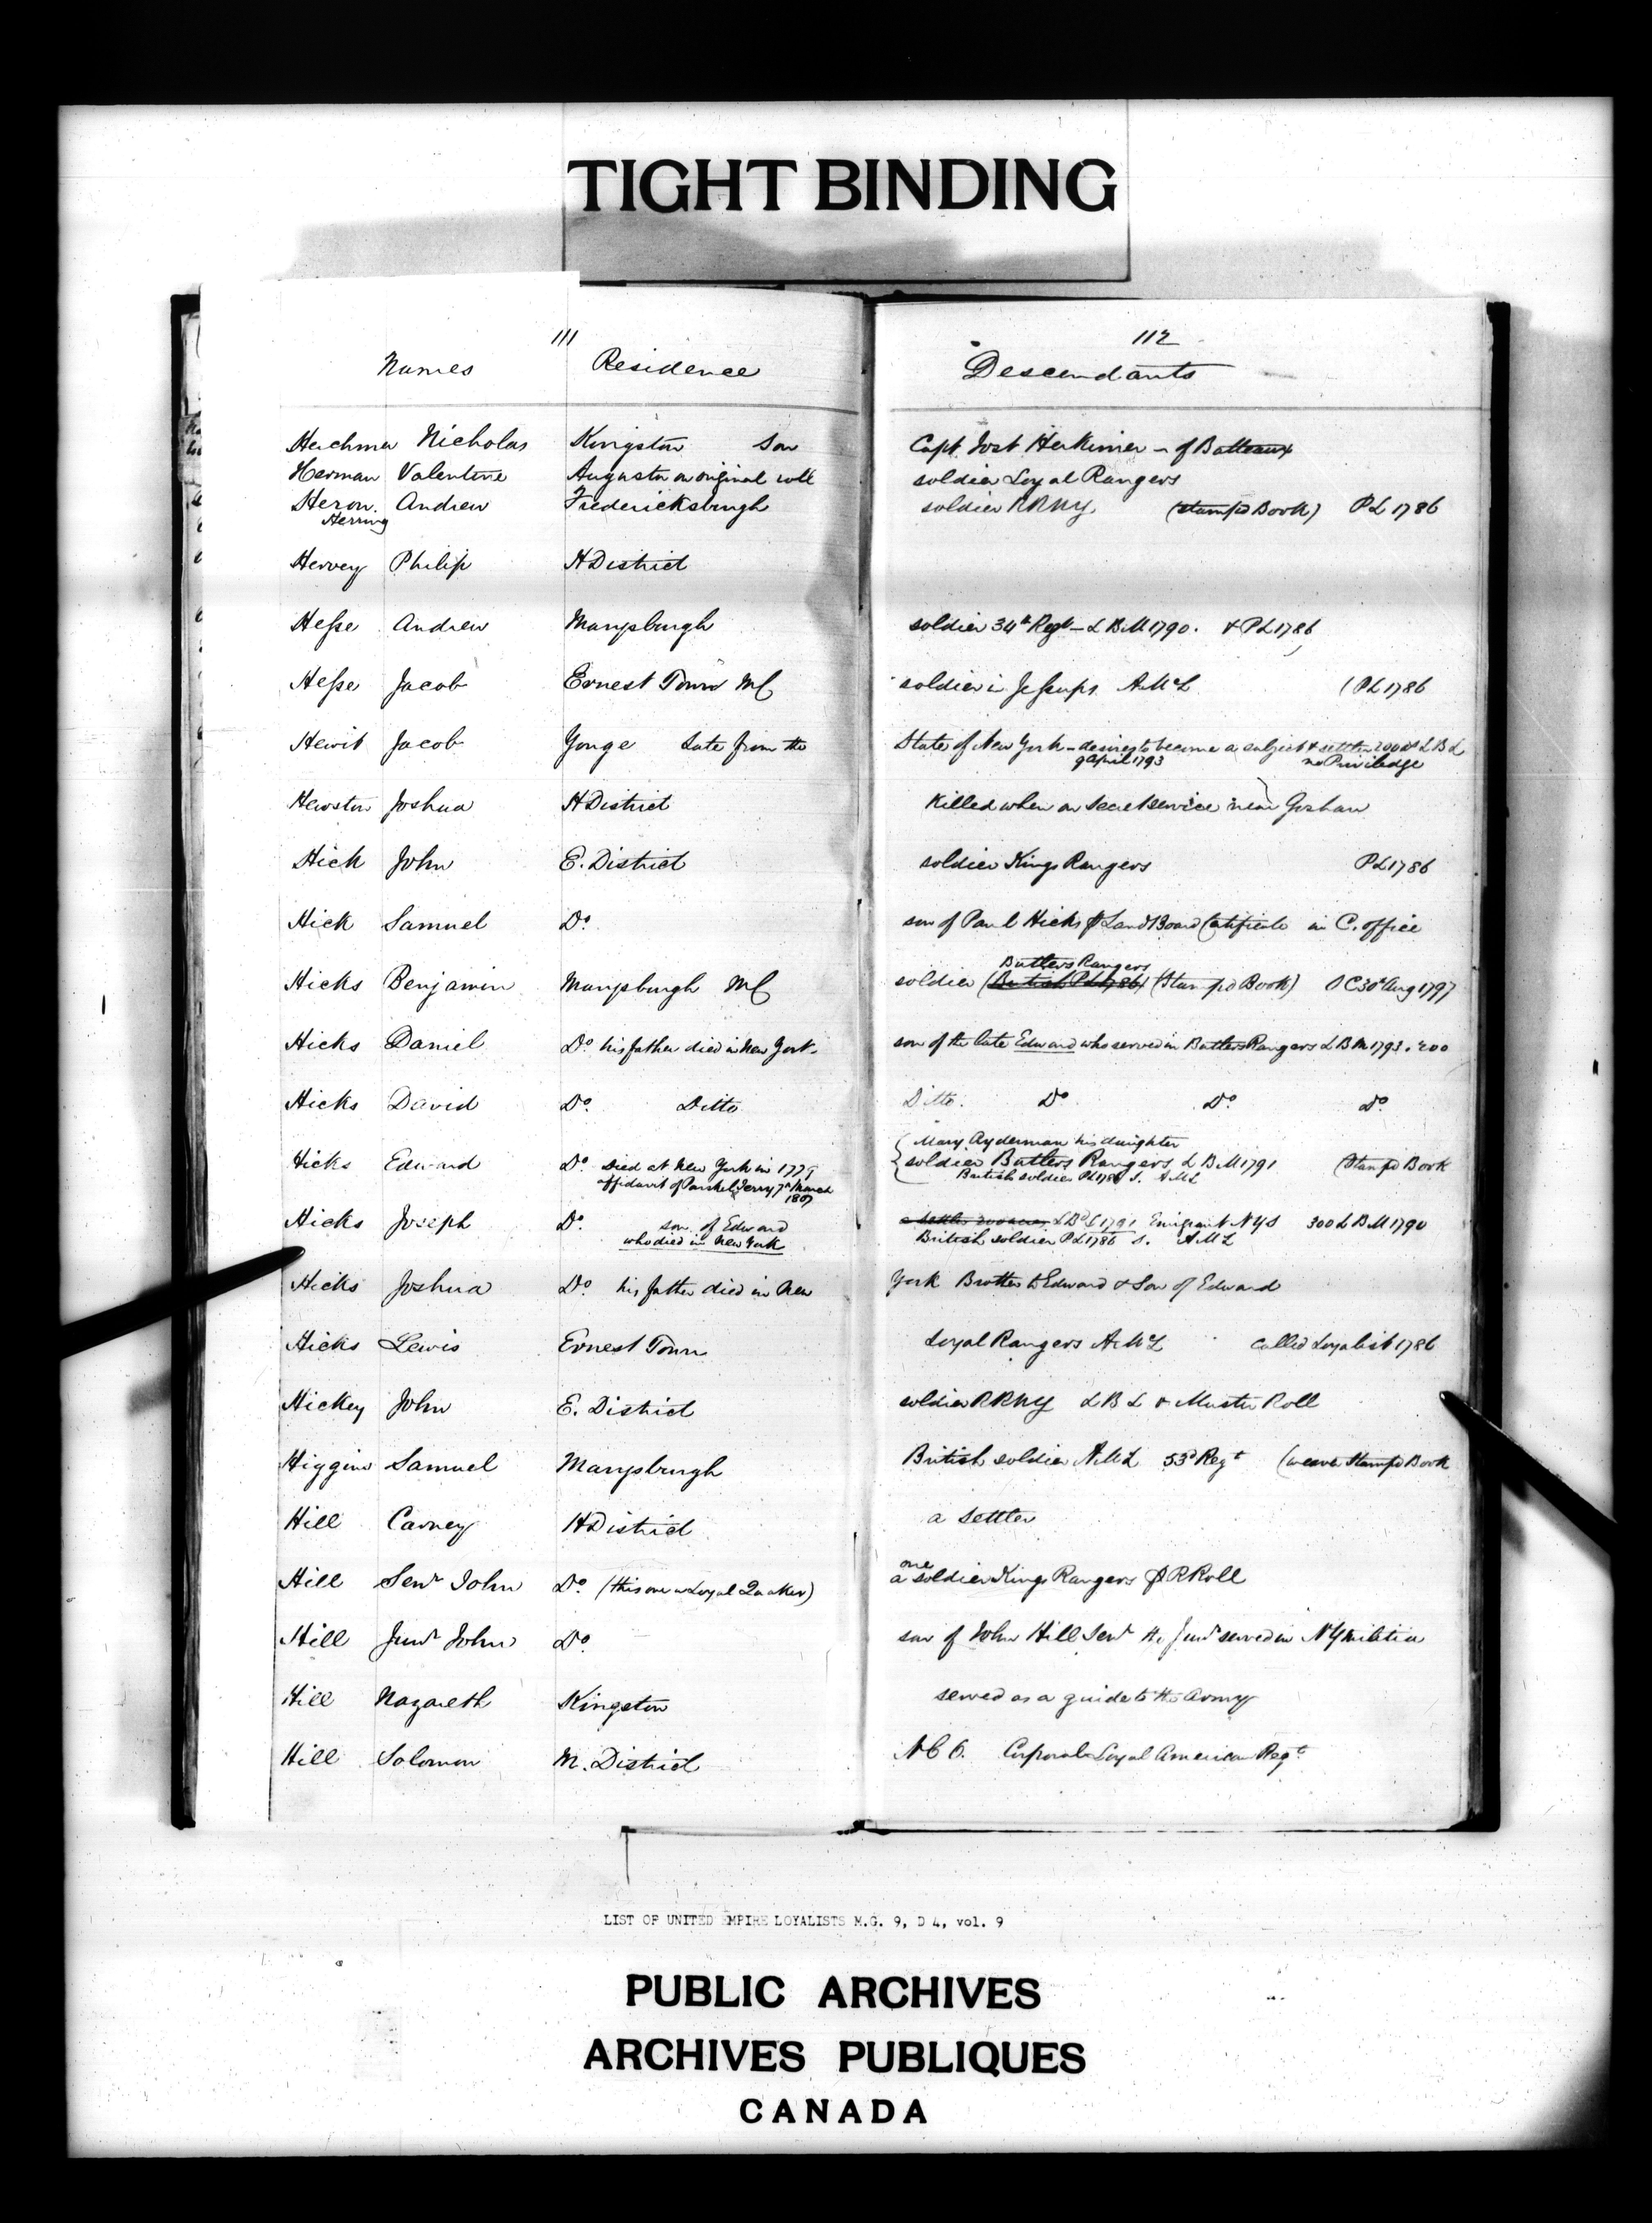 TIGHT BINDING
111
112
Names Residence Descendants
Herchmer Nicholas Kingston Son Capt. Jost Herkimer - of Batteaux
Herman Valentine Augusta on original roll soldier Loyal Rangers
Heron. Andrew Fredericksburgh soldier RRNY (stamp'd Book) PL 1786
Herring
Hervey Philip H District
Hesse Andrew Marysburgh soldier 34th Regt - LBM 1790. & PL 1786
Hesse Jacob Ernest Town MC soldier in Jessups AMcL (PL 1786
Hewit Jacob Yonge Late from the State of New York - desires to become a subject & settler 200 as LBL
9 April 1793 no Priviledge
Hewston Joshua H District Killed when on secret service near Goshen
Hick John E. District soldier Kings Rangers PL 1786
Hick Samuel Do. son of Paul Hicks Land Board Certificate in C. office
Butlers Rangers
Hicks Benjamin Marysburgh MC soldier (British PL 1786) (Stamp'd Book) OC 30th Aug 1797
Hicks Daniel Do. his father died in New York. son of the late Edward who served in Butlers Rangers LBM 1793. 200
Hicks David Do. Ditto Ditto. Do Do. Do.
Mary Ayderman his daughter
Hicks Edward Do. Died at New York in 1779 soldier Butlers Rangers LBM 1791 (Stamp'd Book
affidavit of Parshel Terry 7th March British soldier PL 1786 S. AML
1807
Hicks Joseph Do. son of Edward a settler 200 acres LBd L 1791 Emigrant NYS 300 LBM 1790
who died in New York British soldier PL 1786 s. AML
Hicks Joshua Do. his father died in New York Brother to Edward & Son of Edward
Hicks Lewis Ernest Town Loyal Rangers AMcL called Loyalist 1786
Hickey John E. District soldier RRNY LBL & Muster Roll
Higgins Samuel Marysburgh British soldier AML 53d Regt (weaver Stamp'd Book
Hill Carney H District a settler
one
Hill Senr John Do. (this one a Loyal Quaker) a soldier Kings Rangers PRRoll
Hill Junr John Do. son of John Hill Senr the Junr served in NY militia
Hill Nazareth Kingston served as a guide to the Army
Hill Solomon M. District NCO. Corporal Loyal American Regt.
LIST OF UNITED EMPIRE LOYALISTS M.G. 9, D 4, vol. 9
PUBLIC ARCHIVES
ARCHIVES PUBLIQUES
CANADA